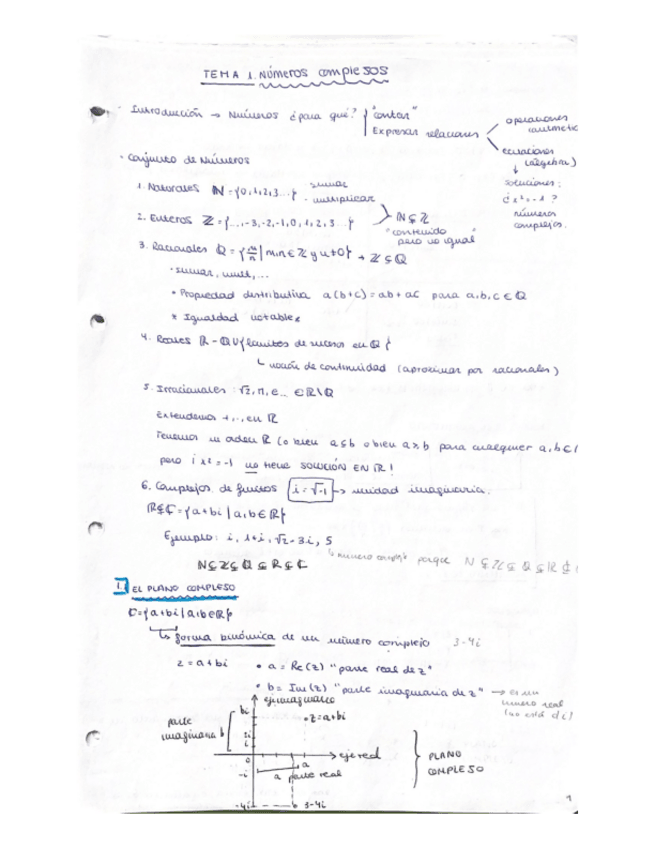 TEMA 1. Números complejos
· Introducción → Números ¿para qué? { "contar"
Expresar relaciones
operaciones
aritmétic
ecuaciones
(álgebra)
↓
soluciones:
¿x²=-1?
números
complejos.
· Conjunto de Números
1. Naturales ℕ={0,1,2,3...} · sumar
· multiplicar
2. Enteros ℤ={...,-3,-2,-1,0,1,2,3...} > ℕ⊊ℤ
"contenido
pero no igual"
3. Racionales ℚ={m/n | m,n∈ℤ y n≠0} → ℤ⊊ℚ
· sumar, mult,...
* Propiedad distributiva a(b+c)=ab+ac para a,b,c∈ℚ
* Igualdad notables
4. Reales ℝ=ℚ∪{límites de suces. en ℚ}
↳ noción de continuidad (aproximar por racionales)
5. Irracionales: √2, π, e... ∈ℝ\ℚ
Extendemos +, ·, en ℝ
Tenemos un orden ℝ (o bien a≤b o bien a≥b para cualquier a,b∈
pero ¡ x²=-1 no tiene SOLUCIÓN EN ℝ!
6. Complejos. i=√-1 → unidad imaginaria.
ℝ⊊ℂ={a+bi | a,b∈ℝ}
Ejemplo: i, 1+i, √2-3i, 5
↳ número complejo porque ℕ⊊ℤ⊊ℚ⊊ℝ⊊ℂ
ℕ⊊ℤ⊊ℚ⊊ℝ⊊ℂ
1. EL PLANO COMPLEJO
ℂ={a+bi | a,b∈ℝ}
↳ forma binómica de un número complejo 3-4i
z=a+bi · a = Re(z) "parte real de z"
· b = Im(z) "parte imaginaria de z" → es un
número real
(no está d i)
eje imaginario
bi
·z=a+bi
parte
imaginaria b
2i
i
0
→ eje real
-i
a
a parte real
PLANO
COMPLEJO
-4i
3-4i
1